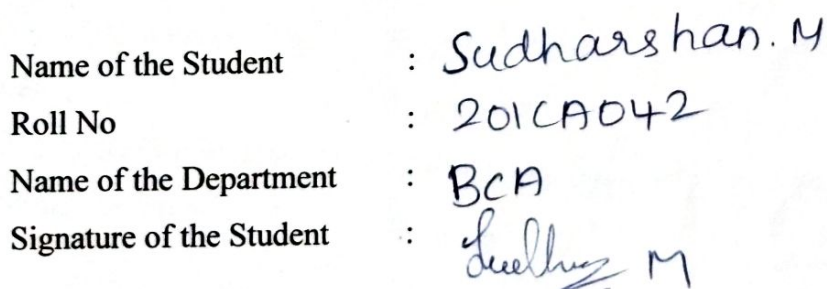 Name of the Student : Sudharshan. M
Roll No : 201CA042
Name of the Department : BCA
Signature of the Student : M